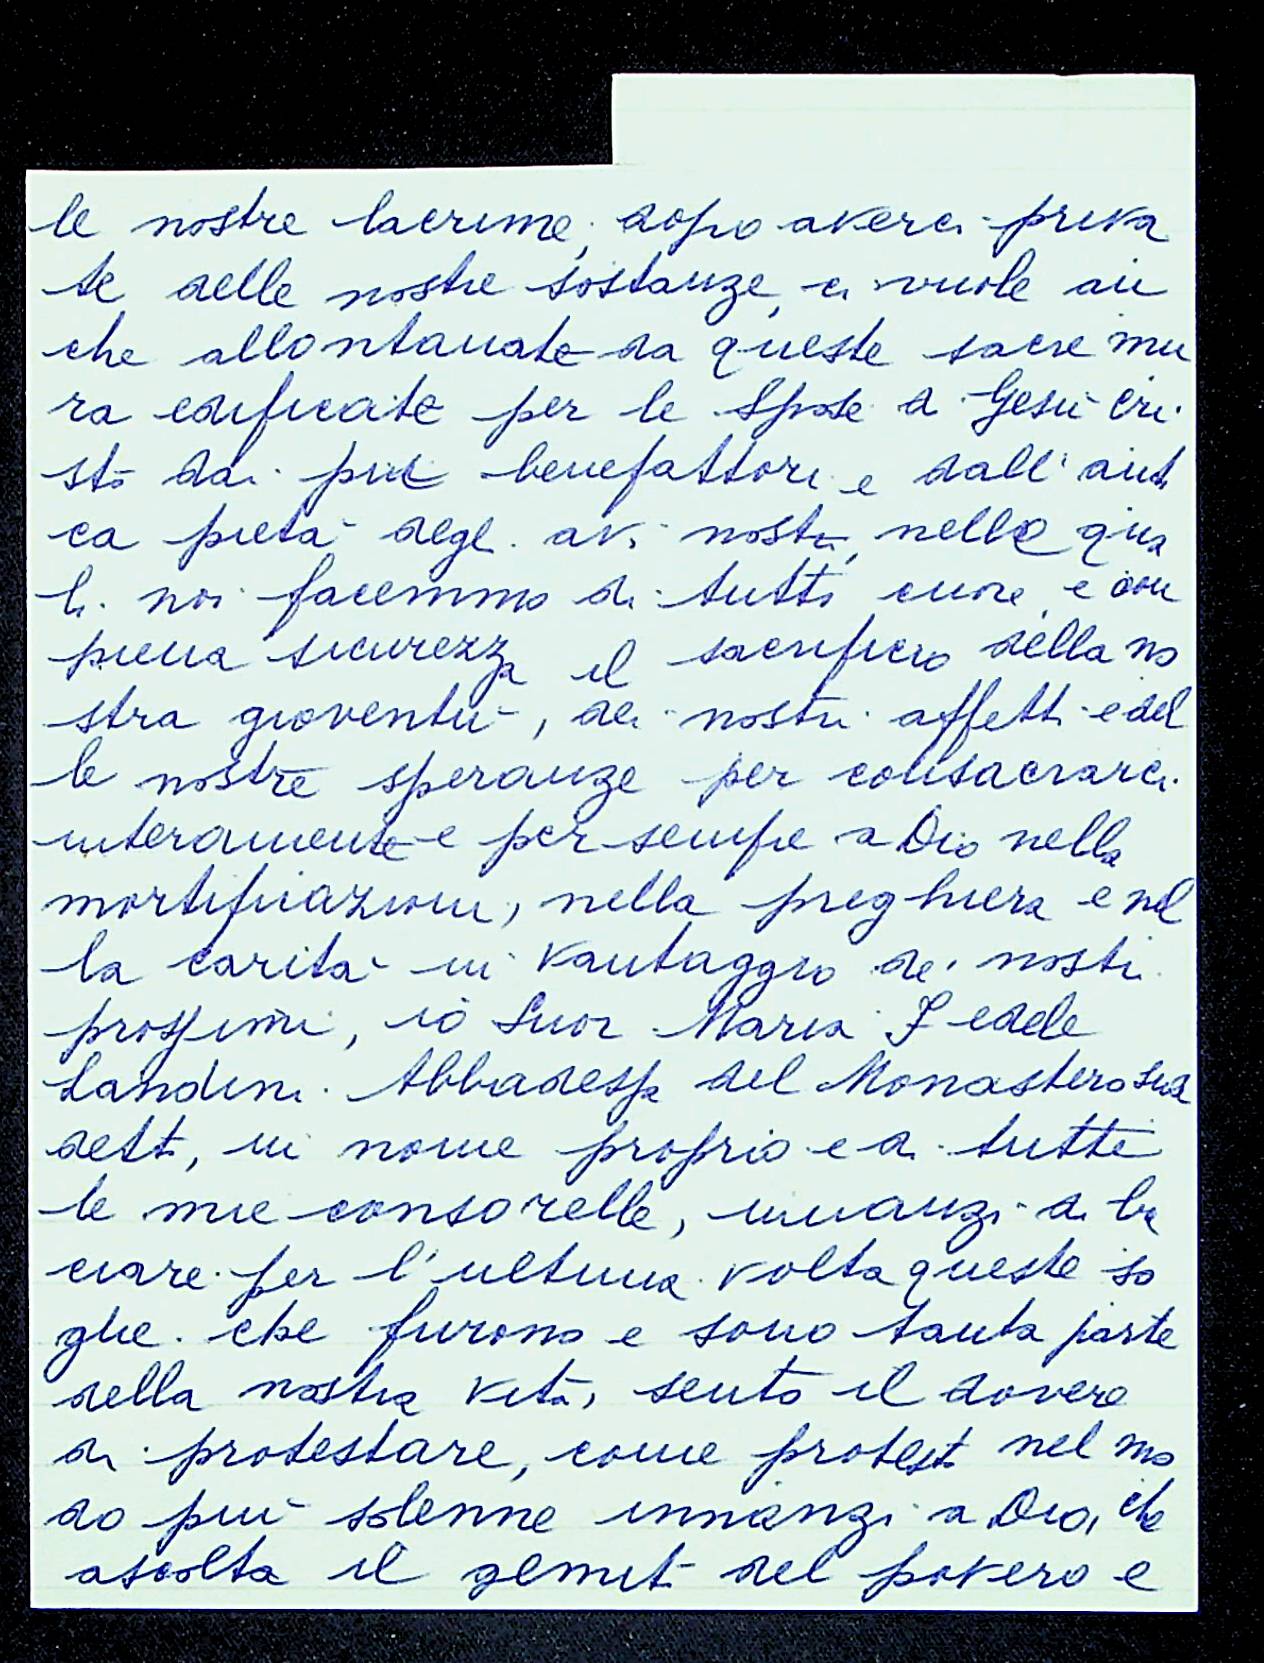 le nostre lacrime, dopo averci priva
te delle nostre sostanze, ci vuole an
che allontanate da queste sacre mu
ra edificate per le Spose di Gesù Cri-
sto dai pii benefattori e dall'anti
ca pietà degli avi nostri, nelle qua
li noi facemmo di tutto cuore, e con
piena sicurezza il sacrificio della no
stra gioventù, dei nostri affetti e del
le nostre speranze per consacrarci
interamente e per sempre a Dio nella
mortificazione, nella preghiera e nel
la carità in vantaggio dei nostri
prossimi, io Suor Maria Fedele
Landini Abbadessa del Monastero sud
detto, in nome proprio e di tutte
le mie consorelle, innanzi di ba
ciare per l'ultima volta queste so
glie che furono e sono tanta parte
della nostra vita, sento il dovere
di protestare, come protesto nel mo
do più solenne innanzi a Dio, che
ascolta il gemito del povero e